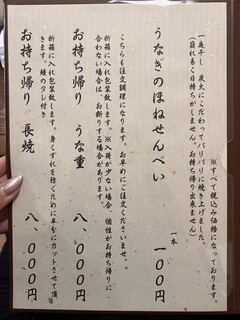 ※すべて税込み価格になっております。
一夜干し 炭火にこだわってパリパリに焼き上げました。
(崩れ易く日持ちがしません。お持ち帰り出来ません)
うなぎのほねせんべい 一本 一〇〇円
こちらも注文調理になります。お早めにご注文くださいませ。
お持ち帰り うな重 八、〇〇〇円
折箱に入れ包装致します。※入荷が少ない場合、個性がお持ち帰りに
合わない場合は、お断りする場合があります。
お持ち帰り 長焼 八、〇〇〇円
折箱に入れ包装致します。身くずれを防ぐために半分にカットさせて頂
きます。鰻のタレ付き